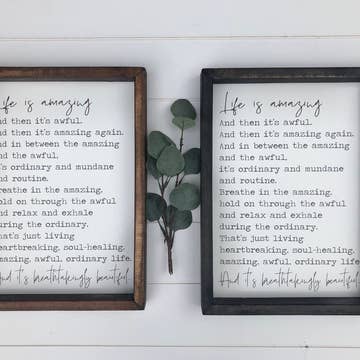 Life is amazing
And then it's awful.
And then it's amazing again.
And in between the amazing
and the awful,
it's ordinary and mundane
and routine.
Breathe in the amazing.
hold on through the awful
and relax and exhale
during the ordinary.
That's just living
heartbreaking, soul-healing.
amazing, awful, ordinary life.
And it's breathtakingly beautiful
Life is amazing
And then it's awful.
And then it's amazing again.
And in between the amazing
and the awful.
it's ordinary and mundane
and routine.
Breathe in the amazing.
hold on through the awful
and relax and exhale
during the ordinary.
That's just living
heartbreaking, soul-healing.
amazing, awful, ordinary life.
And it's breathtakingly beautiful